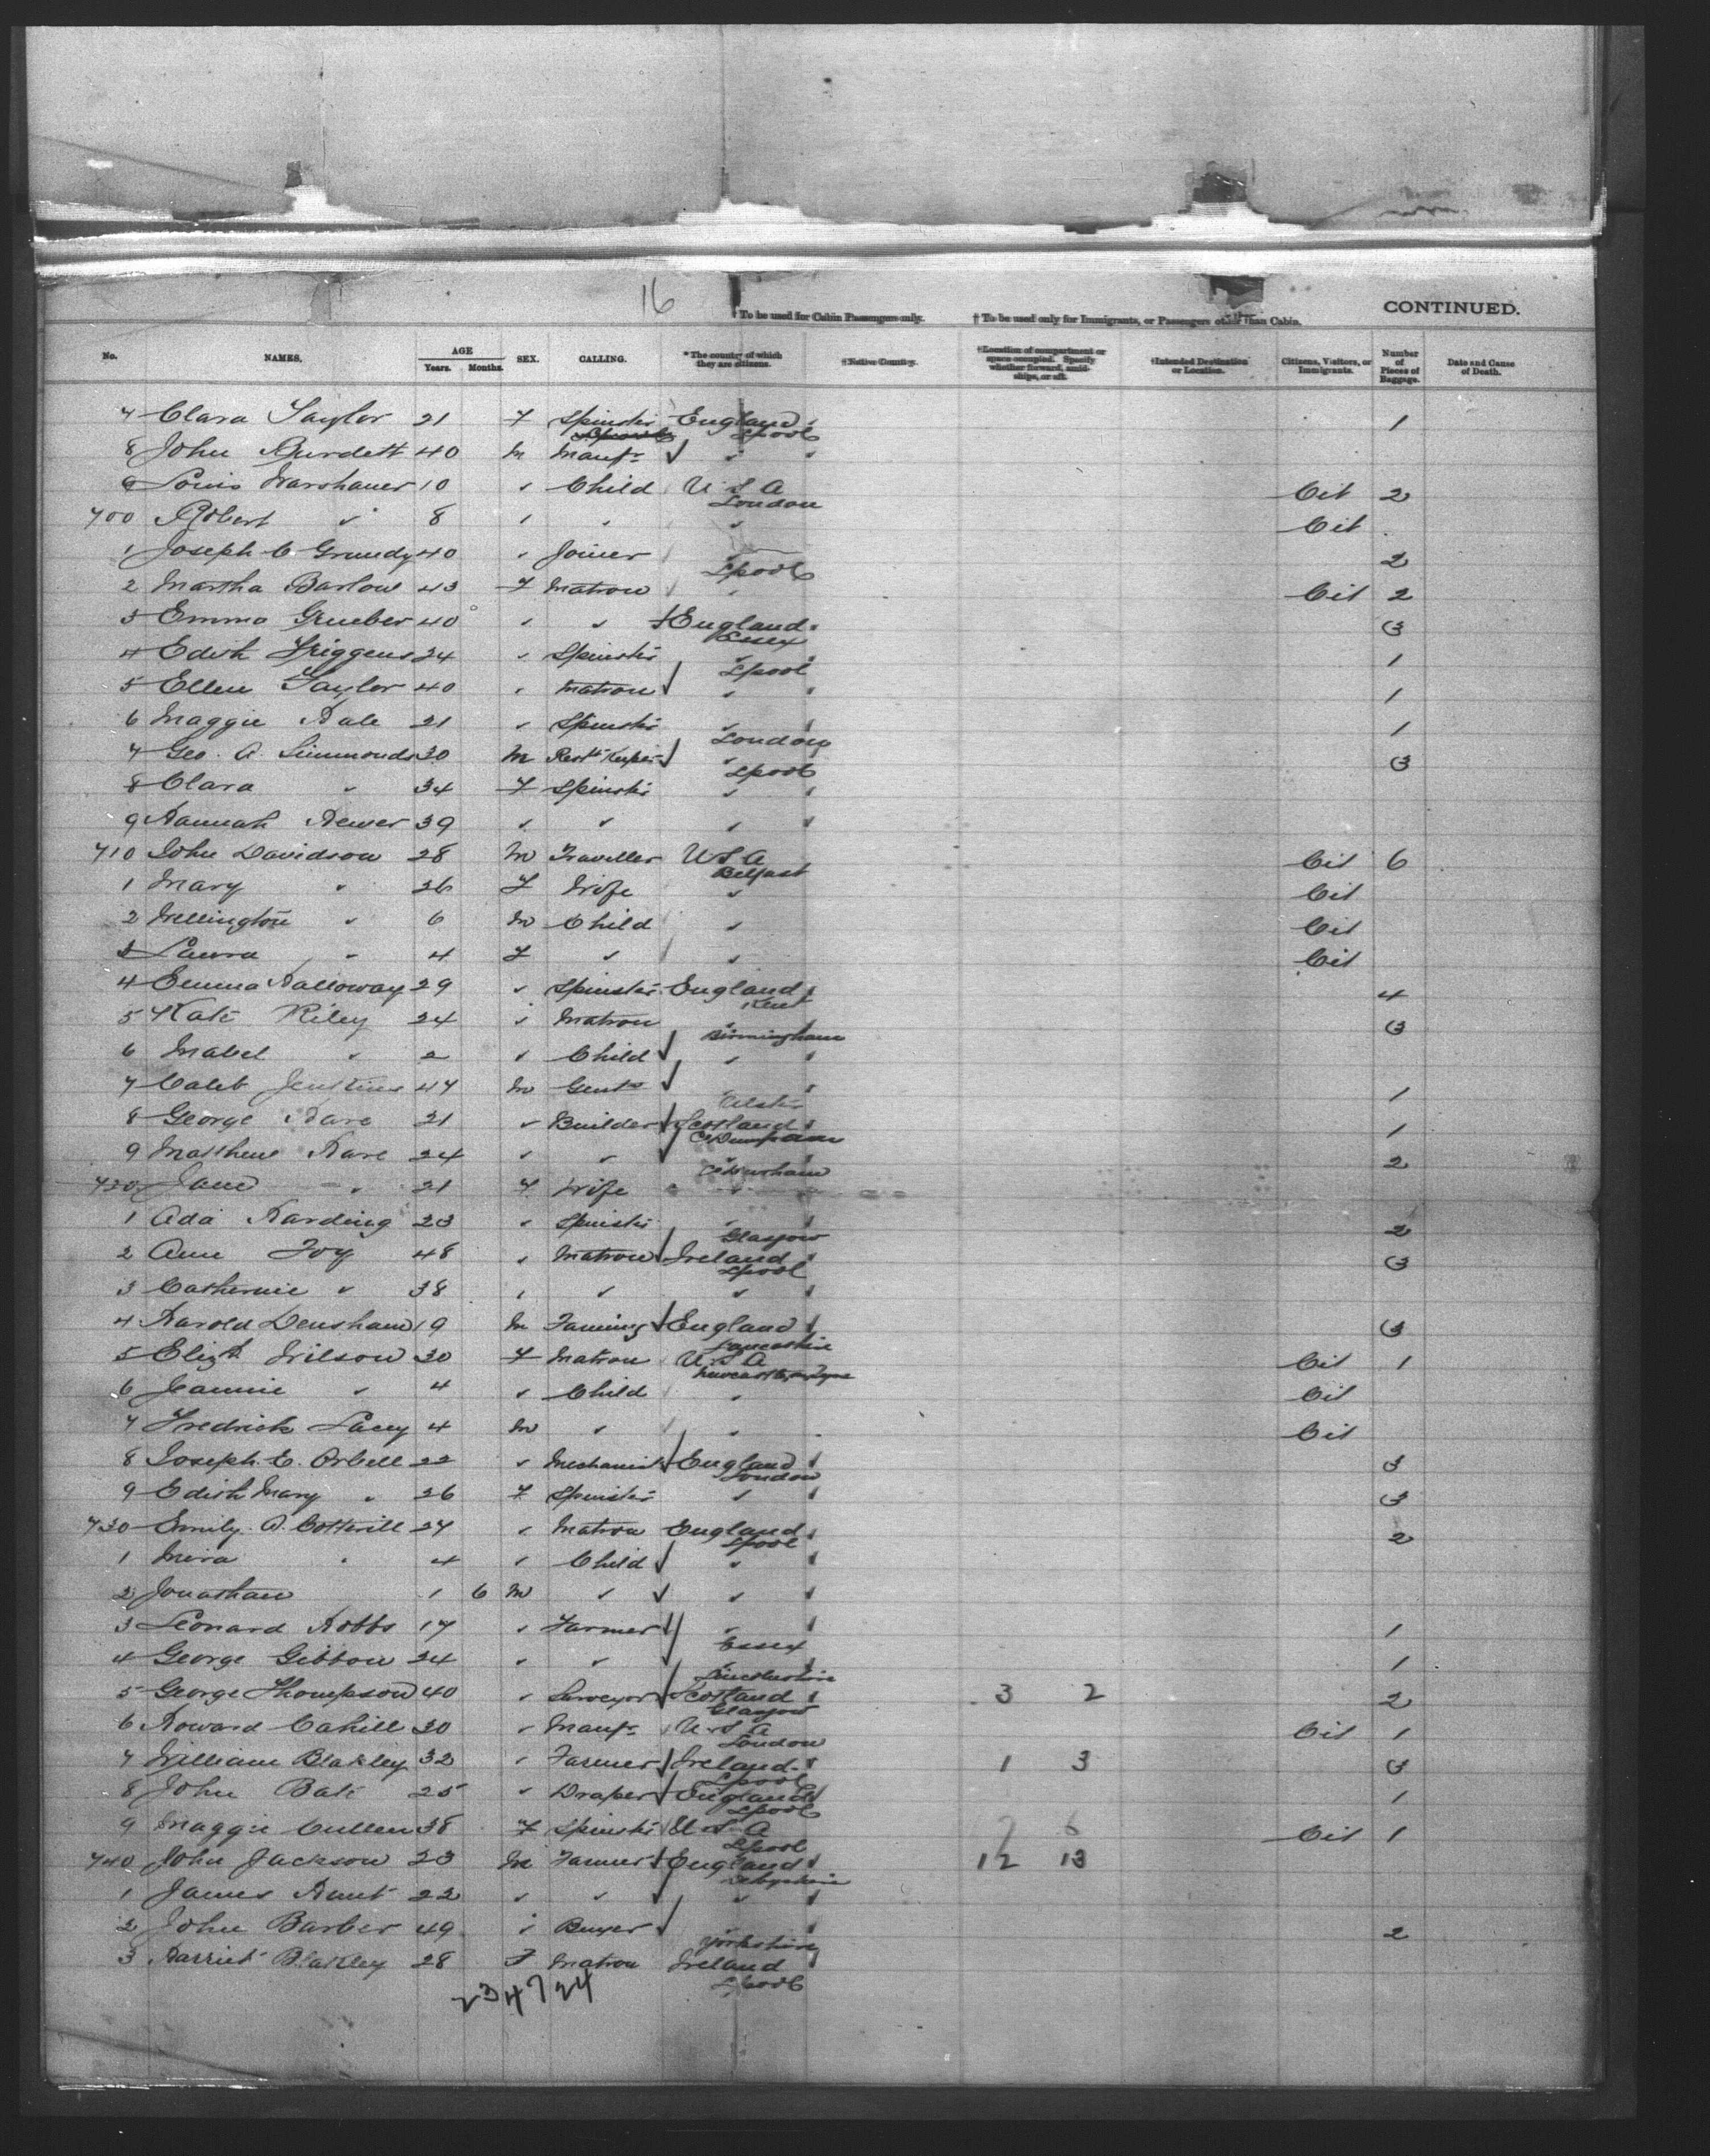 16
*To be used for Cabin Passengers only. † To be used only for Immigrants, or Passengers other than Cabin. CONTINUED.
No. NAMES. AGE Years. Months. SEX. CALLING. *The country of which they are citizens. †Native Country. †Location of compartment or space occupied. Specify whether forward, amidships, or aft. †Intended Destination or Location. Citizens, Visitors, or Immigrants. Number of Pieces of Baggage. Date and Cause of Death.
7 Clara Taylor 21 F Spinster England Lpool 1
8 John Burdett 40 M Manfr ✓ " "
9 Louis Warshauer 10 " Child U.S.A London Cit 2
700 Robert " 8 " " " Cit
1 Joseph C Grundy 40 " Joiner " Lpool 2
2 Martha Barlow 43 F Matron " Cit 2
3 Emma Grueber 40 " " England Essex 3
4 Edith Higgens 24 " Spinster " Lpool 1
5 Ellen Taylor 40 " Matron ✓ " 1
6 Maggie Hale 21 " Spinster " London 1
7 Geo. A. Simmonds 30 M Restt Keeper ✓ " Lpool 3
8 Clara " 34 F Spinster " "
9 Hannah Hewer 39 " " " "
710 John Davidson 28 M Traveller U S A Belfast Cit 6
1 Mary " 26 F Wife " Cit
2 Wellington " 6 M Child " Cit
3 Laura " 4 F " " Cit
4 Emma Halloway 29 " Spinster England Kent 4
5 Kate Riley 24 " Matron " Birmingham 3
6 Mabel " 2 " Child ✓ " "
7 Caleb Jenkins 47 M Gent ✓ " Ulster 1
8 George Hare 21 " Builder ✓ Scotland 1
9 Matthew Hare 24 " " ✓ " Co Durham 2
720 Jane " 21 F Wife " "
1 Ada Harding 23 " Spinster " Glasgow 2
2 Ann Foy 48 " Matron ✓ Ireland Lpool 3
3 Catherine " 38 " " " "
4 Harold Densham 19 M Farming ✓ England Lancashire 3
5 Elizth Wilson 30 F Matron U.S.A Newcastle on Tyne Cit 1
6 Jeannie " 4 " Child " Cit
7 Fredrick Lacey 4 M " " Cit
8 Joseph E. Orbell 22 " Mechanic ✓ England London 3
9 Edith Mary " 26 F Spinster " " 3
730 Emily A. Cotterill 27 " Matron England Lpool 2
1 Mira " 4 " Child ✓ " "
2 Jonathan 1 6 M " ✓ " "
3 Leonard Hobbs 17 " Farmer ✓ " Essex 1
4 George Gibbon 24 " " " Lincolnshire 1
5 George Thompson 40 " Surveyor ✓ Scotland Glasgow 3 2 2
6 Howard Cahill 30 " Manfr U.S.A London Cit 1
7 William Blakley 32 " Farmer ✓ Ireland Lpool 1 3 3
8 John Bate 25 " Draper ✓ England Lpool 1
9 Maggie Cullen 38 F Spinster U.S.A Lpool 7 6 Cit 1
740 John Jackson 23 M Farmer England Derbyshire 12 13
1 James Hunt 22 " " ✓ " "
2 John Barber 49 " Buyer ✓ " Yorkshire 2
3 Harriet Blakley 28 F Matron Ireland Lpool
234724